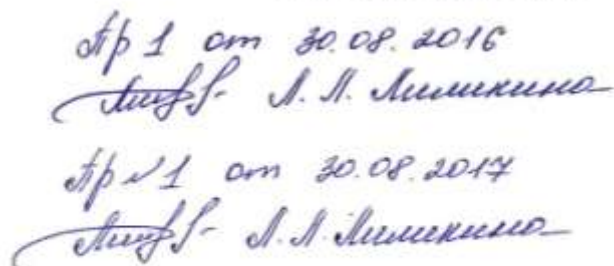 Пр 1 от 30.08.2016
Л. Л. Миликина
Пр №1 от 30.08.2017
Л. Л. Миликина